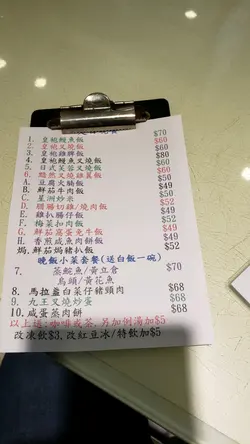 1. 皇袍鰻魚飯 $70
2. 皇袍叉燒飯 $60
3. 皇袍雞脾飯 $60
4. 皇袍鰻魚叉燒飯 $80
5. 日式芙蓉叉燒飯 $60
6. 黯然叉燒雞翼飯 $60
A. 豆腐火腩飯 $50
B. 鮮茄牛肉飯 $49
C. 星洲炒米 $50
D. 順腸切雞/燒肉飯 $52
E. 雞扒腸仔飯 $49
F. 梅菜扣肉飯 $50
G. 鮮茄窩蛋免牛飯 $49
H. 香煎咸魚肉餅飯 $49
焗. 鮮茄焗豬扒飯 $52
晚飯小菜套餐(送白飯一碗)
7. 蒸鯇魚/黃立倉 $70
烏頭/黃花魚
8. 馬拉盞白菜仔豬頸肉 $68
9. 九王叉燒炒蛋 $68
10. 咸蛋蒸肉餅 $68
以上送:咖啡或茶,另加例湯加$5
改凍飲$3,改紅豆冰/特飲加$5